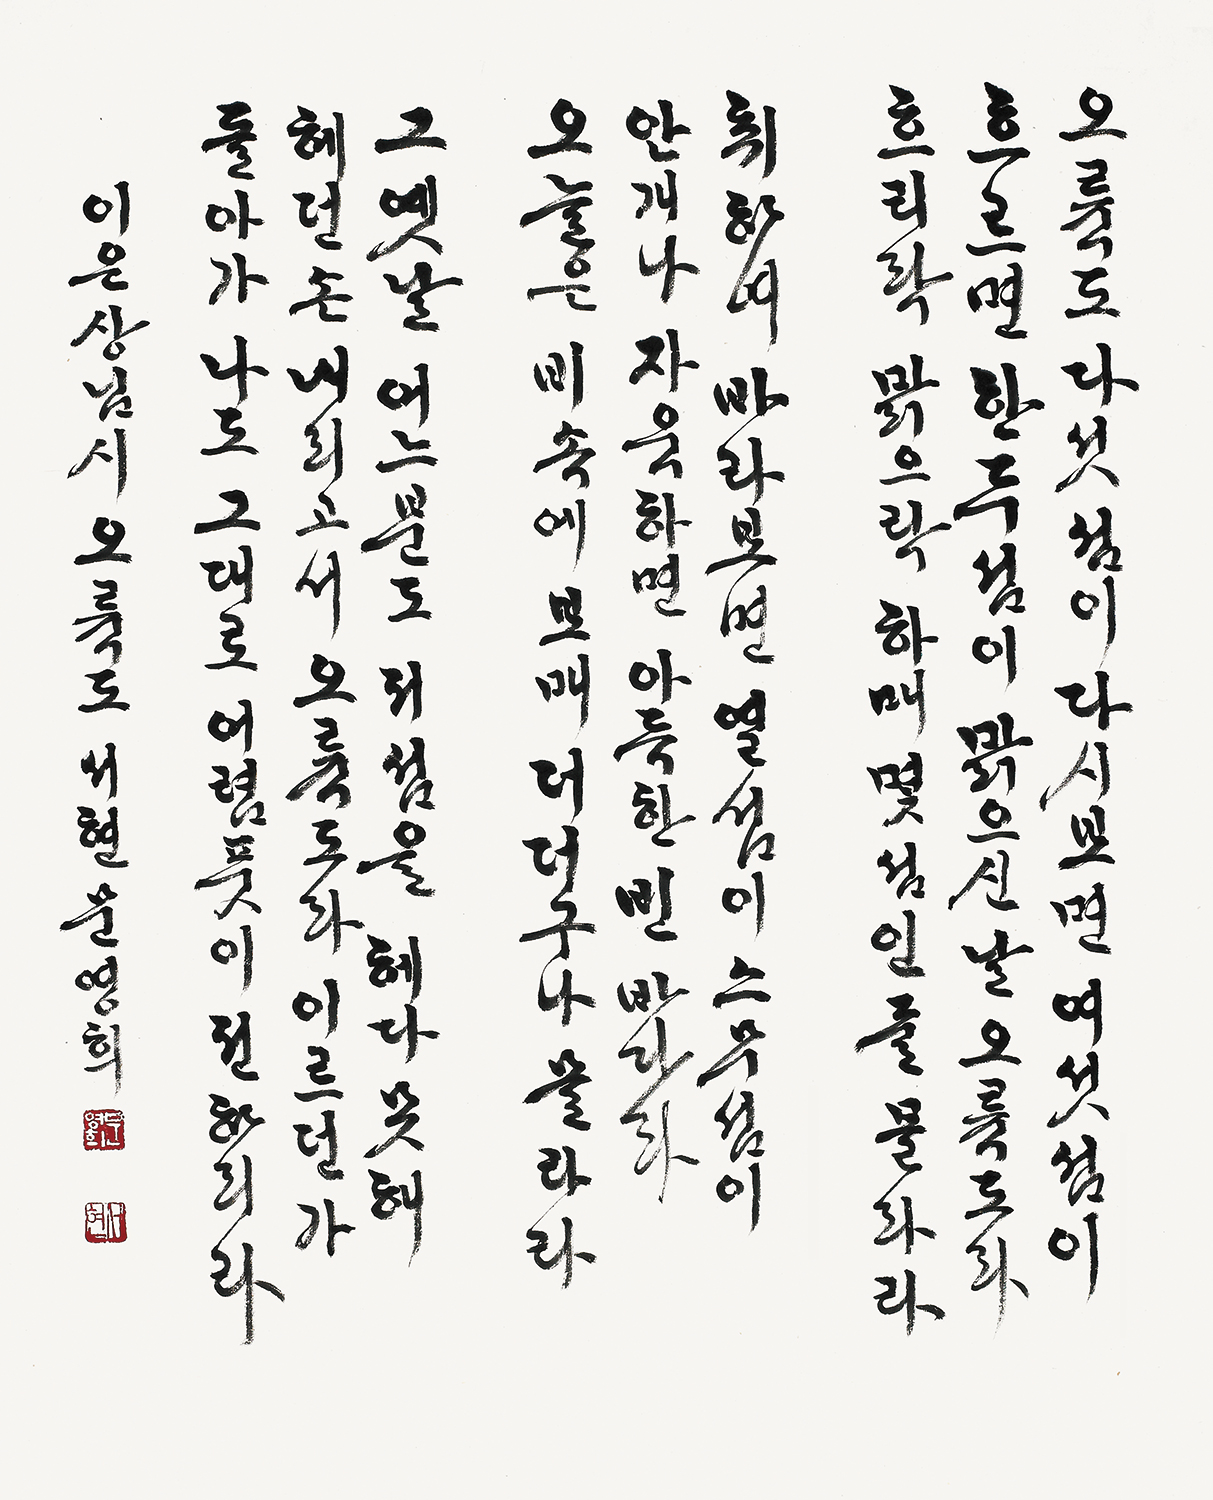 오륙도 다섯 섬이 다시보면 여섯 섬이
흐르면 한두 섬이 맑으신 날 오륙도라
흐리락 맑으락 하매 몇 섬인줄 몰라라
취하여 바라보면 열 섬이 스무 섬이
안개나 자욱하면 아득한 빈 바다라
오늘은 비 속에 보매 더 더구나 몰라라
그 옛날 어느분도 저 섬을 헤다 못해
헤던 손 내리고서 오륙도라 이르던가
돌아가 나도 그대로 어렴풋이 전하리라
이은상님 시 오륙도 서현 문영희
문영희
서현